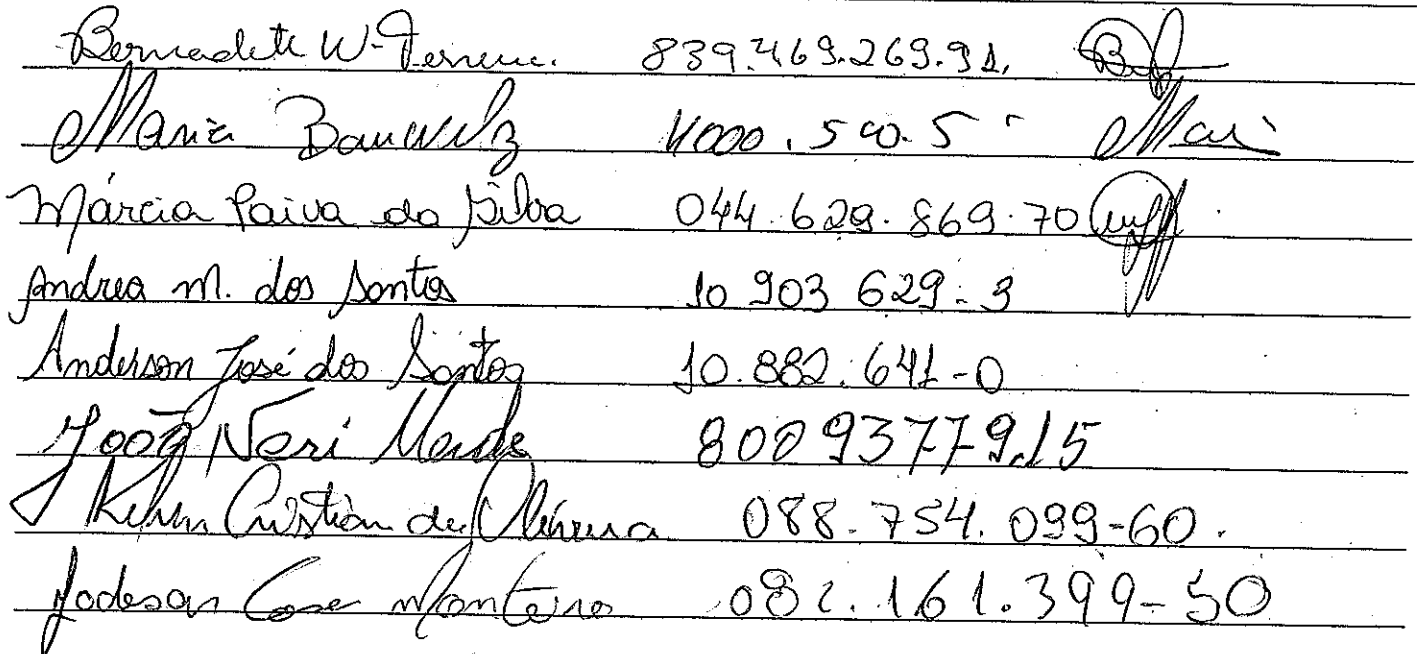 Bernadete W. 839.469.269.91.
Maria 4000.500.5 Mari
Márcia Paiva da Silva 044.629.869.70
Andrea M. dos Santos 10 903 629-3
Anderson José dos Santos 10.882.641-0
João Neri 8009377915
Cristian de Oliveira 088.754.099-60.
Jodeson Monteiro 082.161.399-50